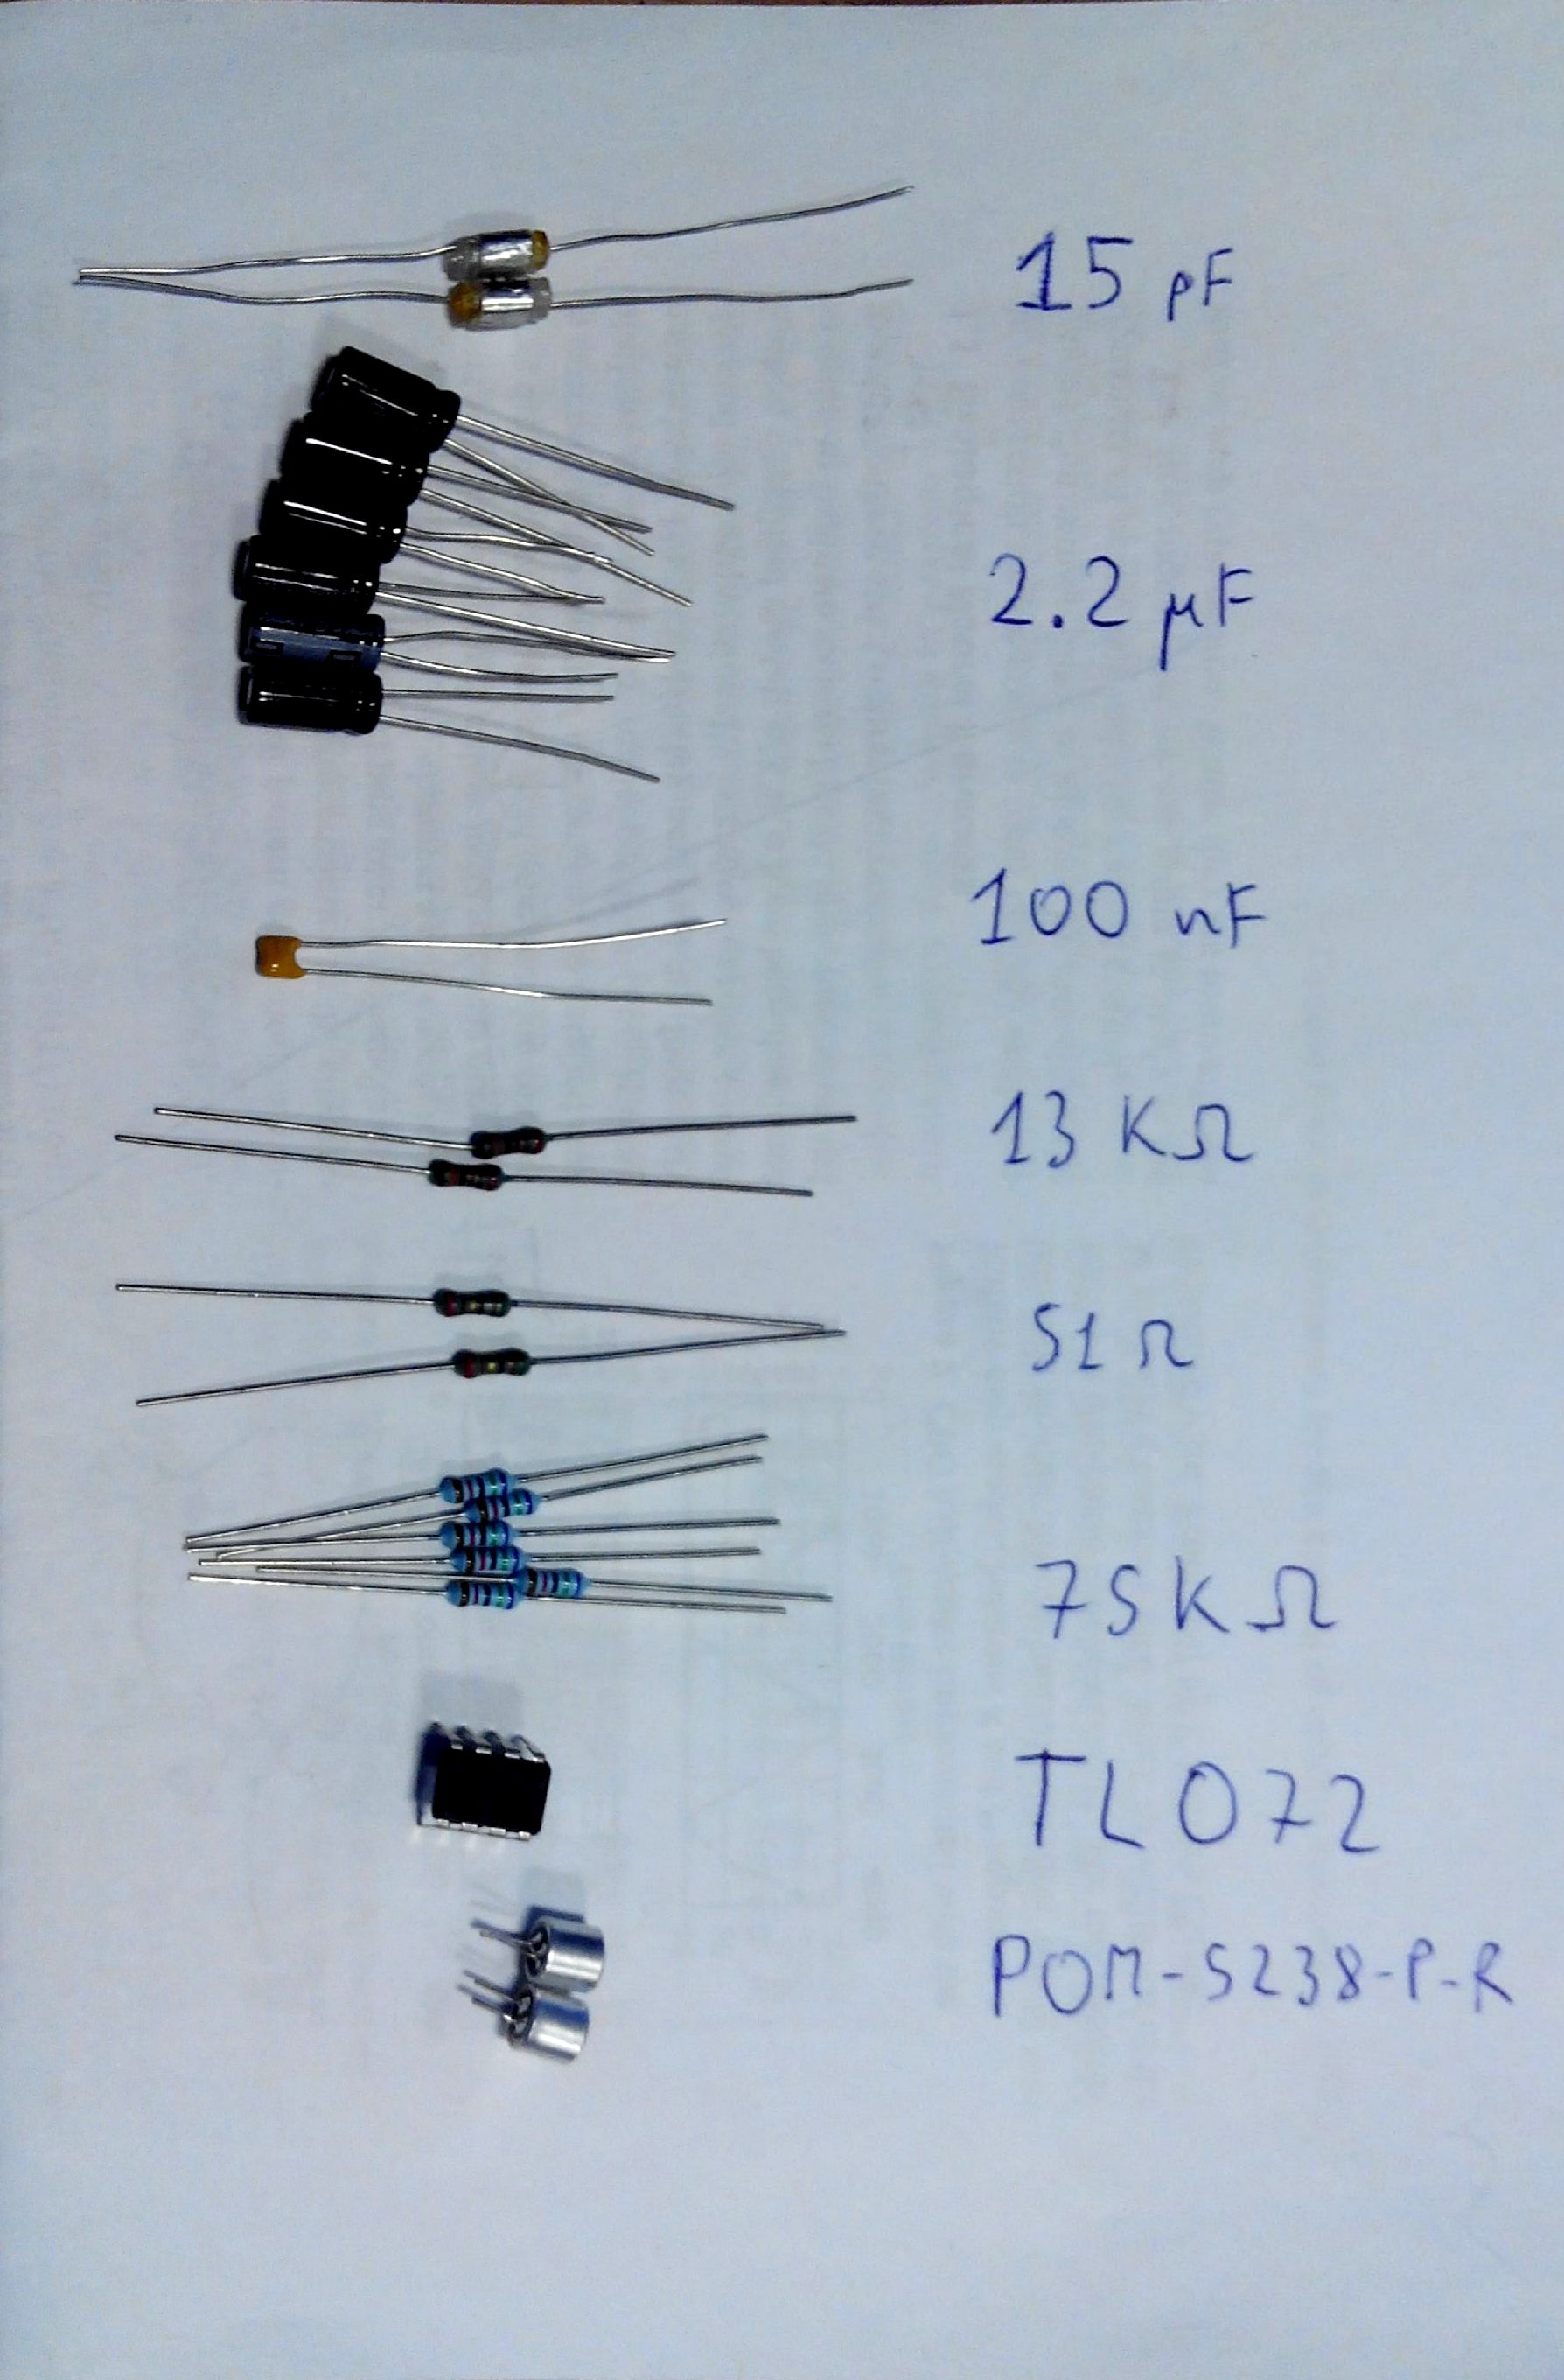 15 pF
2.2 µF
100 nF
13 KΩ
51 Ω
75 KΩ
TL072
POM-5238-P-R